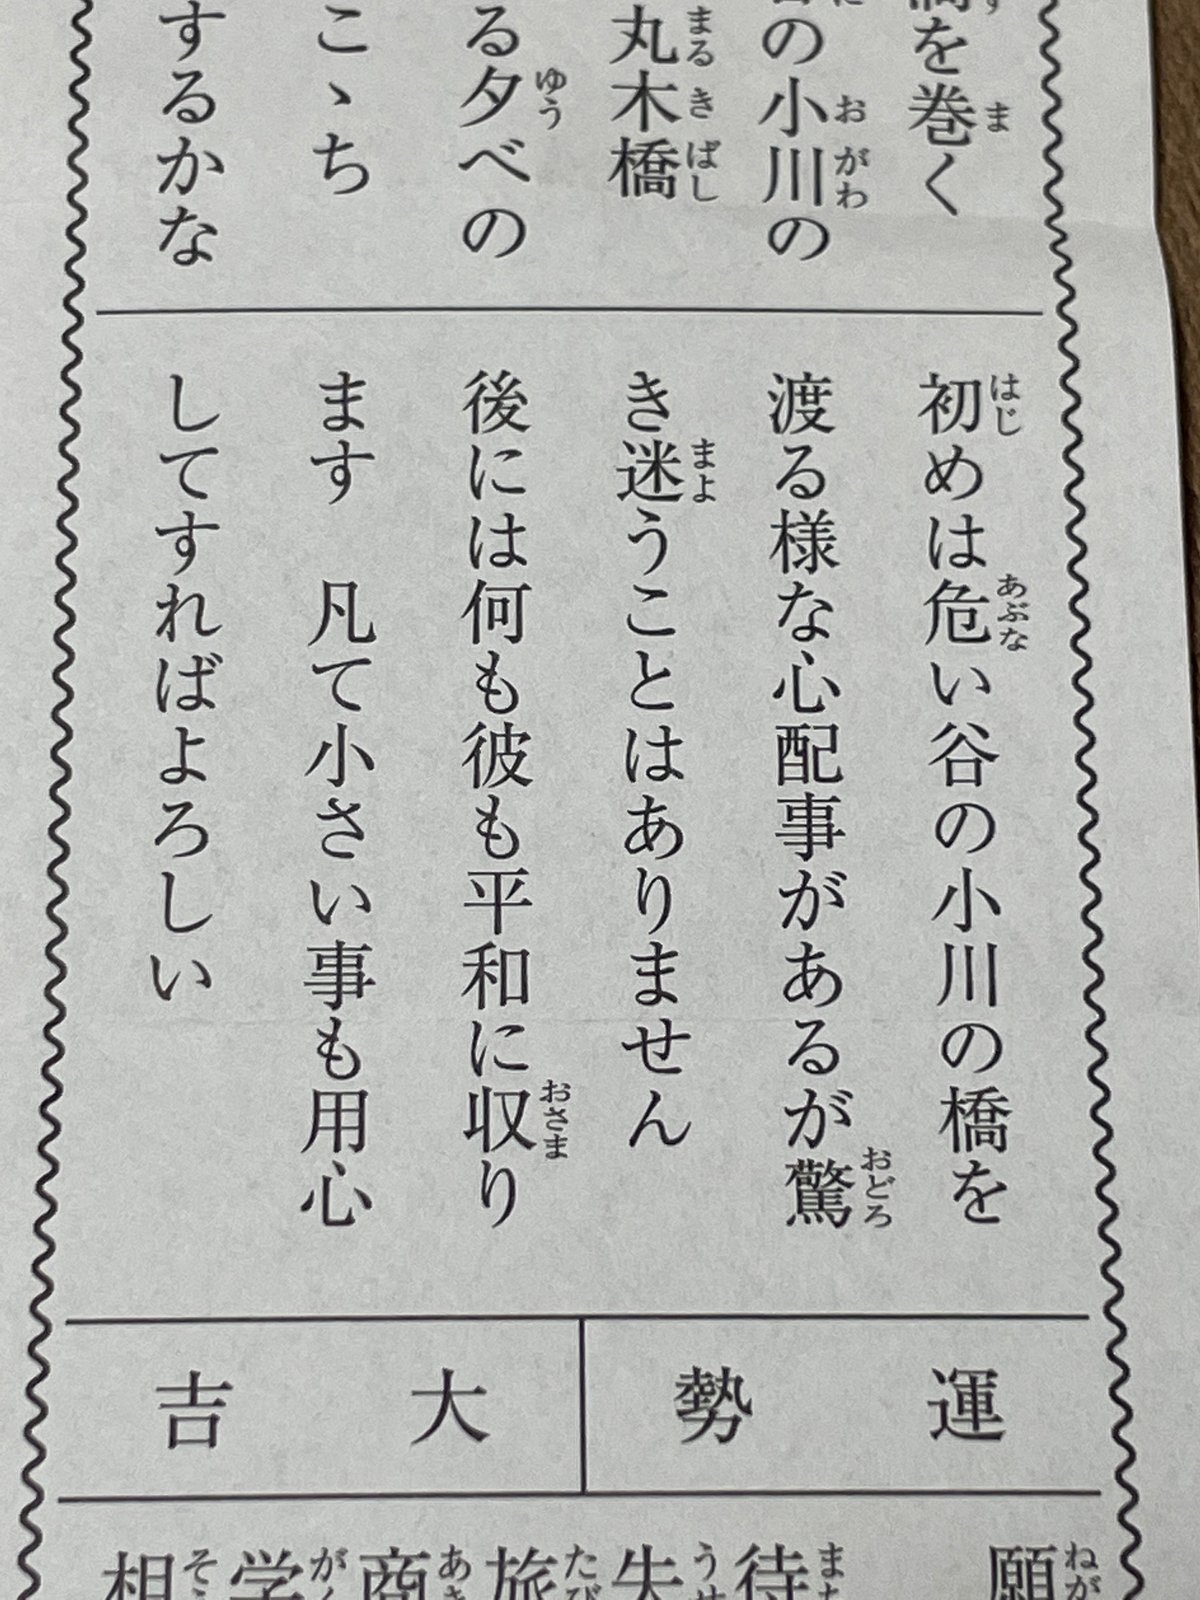 を巻く
の小川の
丸木橋
る夕べの
こゝち
するかな
初めは危い谷の小川の橋を
渡る様な心配事があるが驚
き迷うことはありません
後には何も彼も平和に収り
ます　凡て小さい事も用心
してすればよろしい
運勢　大吉
願　待　失　旅　商　学　相